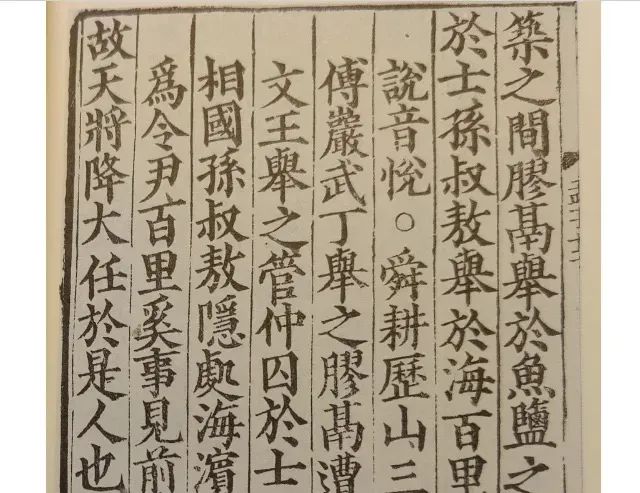 築之間膠鬲舉於魚鹽之
於士孫叔敖舉於海百里
說音悅○舜耕歷山三
傅巖武丁舉之膠鬲遭
文王舉之管仲囚於士
相國孫叔敖隱處海濵
爲令尹百里奚事見前
故天將降大任於是人也